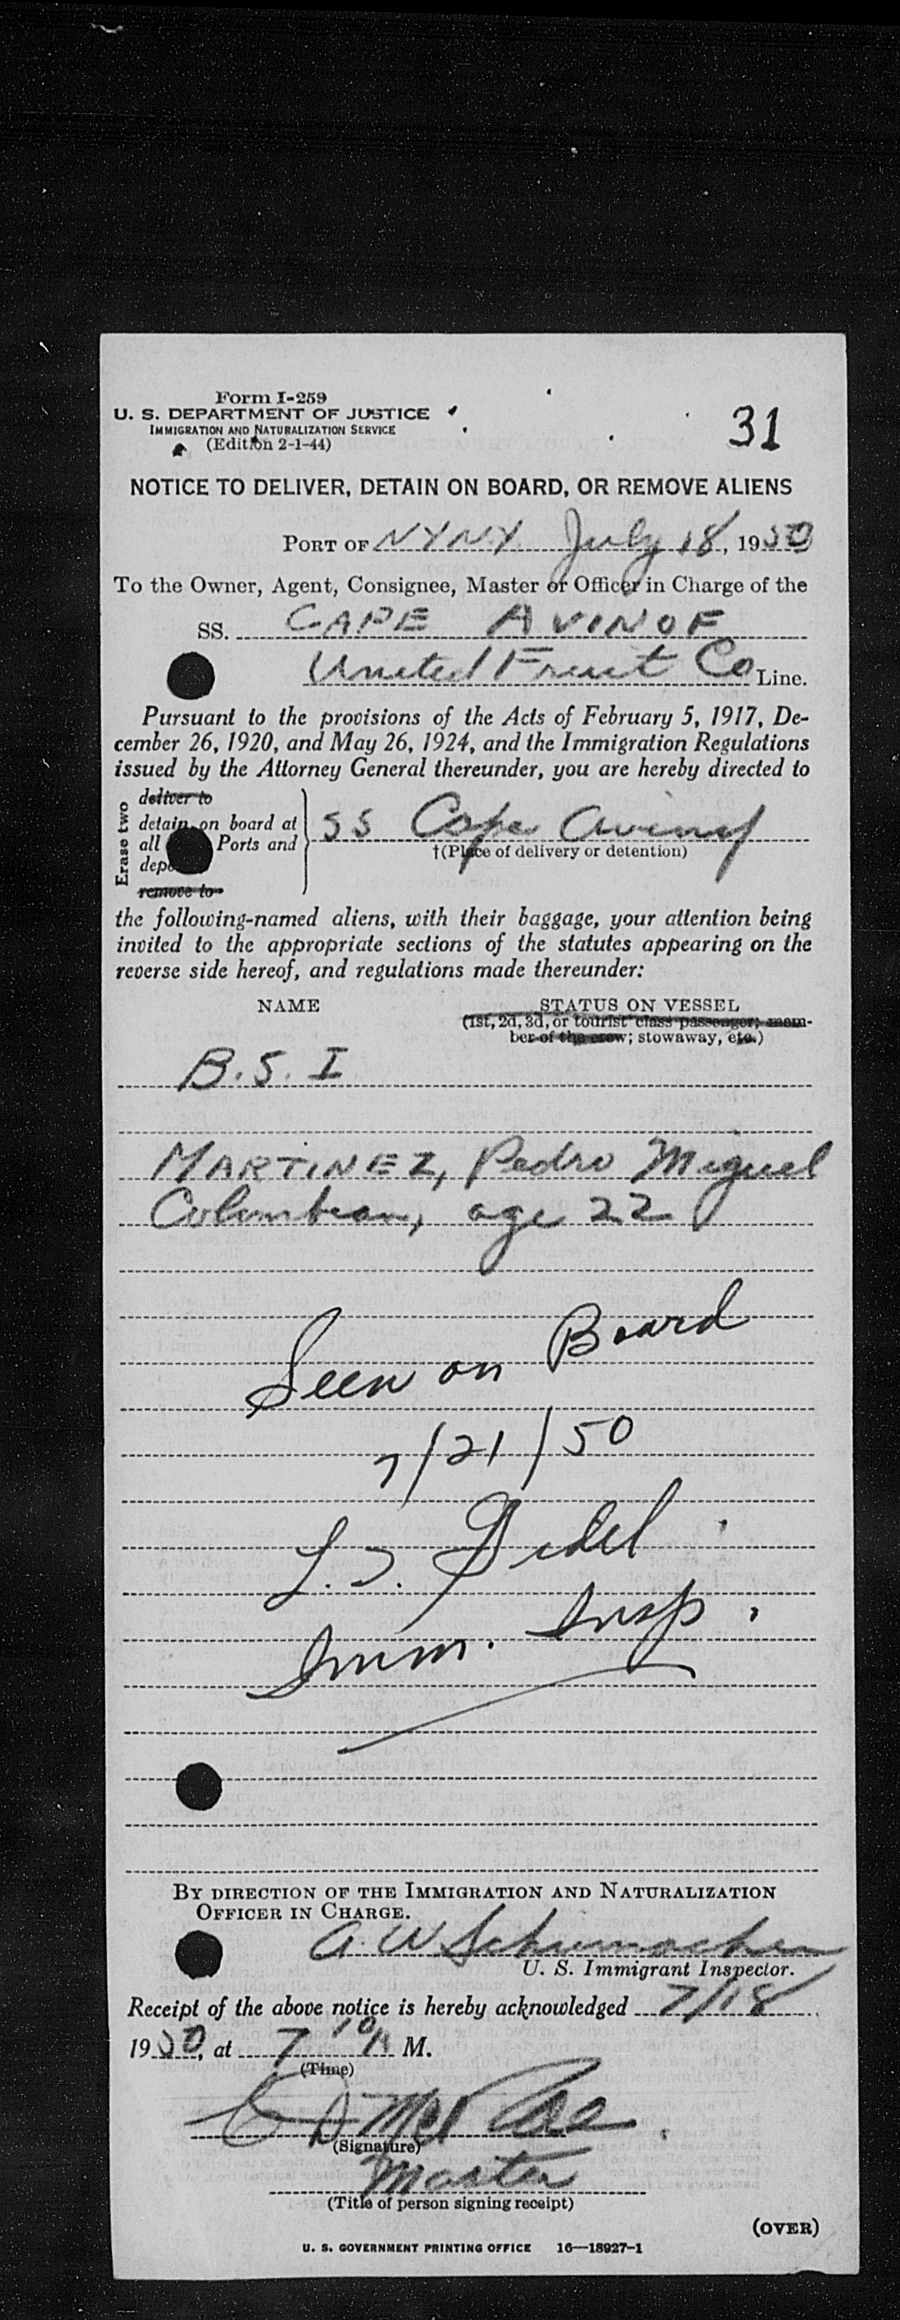 Form I-259
U. S. DEPARTMENT OF JUSTICE
IMMIGRATION AND NATURALIZATION SERVICE
(Edition 2-1-44)
31
NOTICE TO DELIVER, DETAIN ON BOARD, OR REMOVE ALIENS
PORT OF NYNY July 18, 1950
To the Owner, Agent, Consignee, Master or Officer in Charge of the
SS. CAPE AVINOF
United Fruit Co Line.
Pursuant to the provisions of the Acts of February 5, 1917, De-
cember 26, 1920, and May 26, 1924, and the Immigration Regulations
issued by the Attorney General thereunder, you are hereby directed to
Erase two
deliver to
detain on board at
all Ports and
remove to
SS Cape Avinof
†(Place of delivery or detention)
the following-named aliens, with their baggage, your attention being
invited to the appropriate sections of the statutes appearing on the
reverse side hereof, and regulations made thereunder:
NAME STATUS ON VESSEL
(1st, 2d, 3d, or tourist class passenger; mem-
ber of the crew; stowaway, etc.)
B.S.I
MARTINEZ, Pedro Miguel
Colombian, age 22
Seen on Board
7/21/50
Imm. Insp.
BY DIRECTION OF THE IMMIGRATION AND NATURALIZATION
OFFICER IN CHARGE.
A. W. Schumacher
U. S. Immigrant Inspector.
Receipt of the above notice is hereby acknowledged 7/18
1950, at 7 10 A M.
(Time)
(Signature)
Master
(Title of person signing receipt)
(OVER)
U. S. GOVERNMENT PRINTING OFFICE 16—18927-1